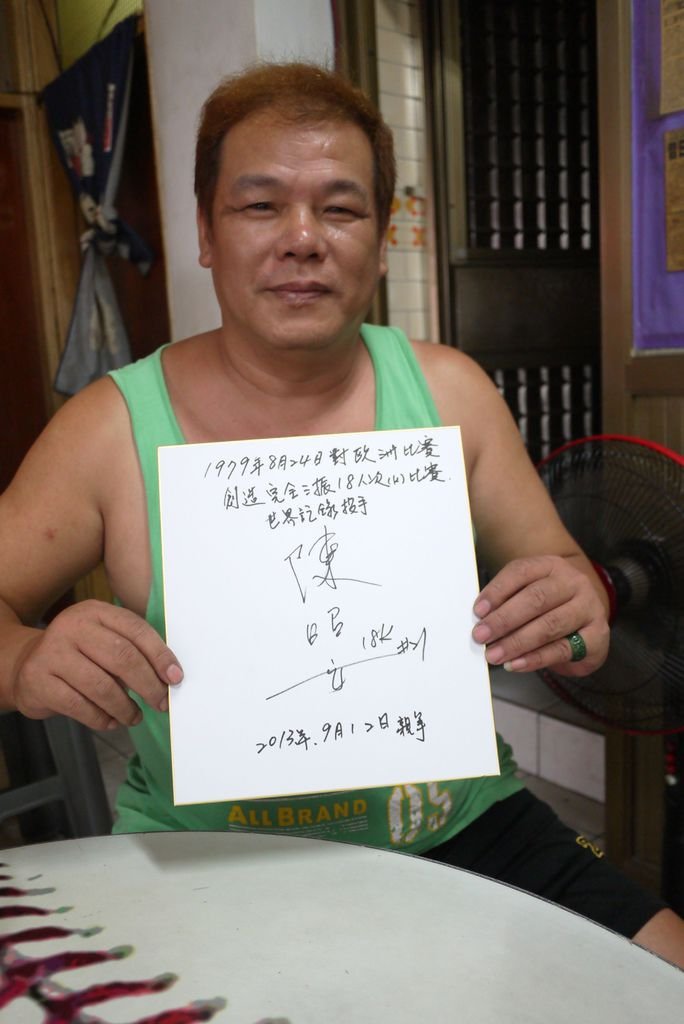 1979年8月24日對欧洲比賽
創造完全三振18人次(K)比賽.
世界記錄投手
陳
昭
安
18K #21
2013年.9月12日親筆
ALL BRAND
05